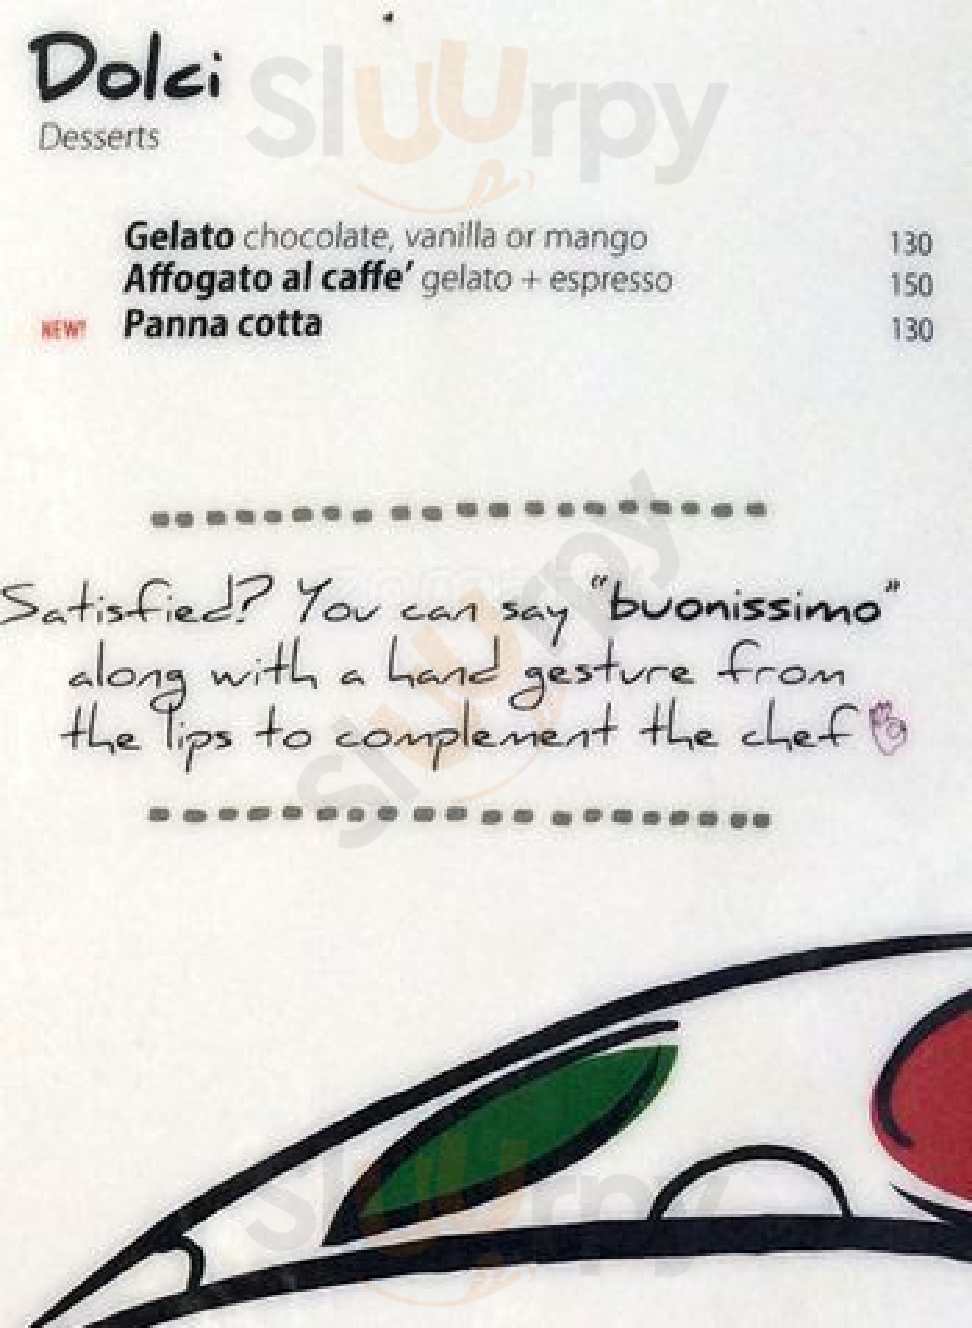 Dolci
Desserts
Gelato chocolate, vanilla or mango 130
Affogato al caffe' gelato + espresso 150
NEW! Panna cotta 130
Satisfied? You can say "buonissimo"
along with a hand gesture from
the lips to complement the chef
Sluurpy
Sluurpy
Sluurpy